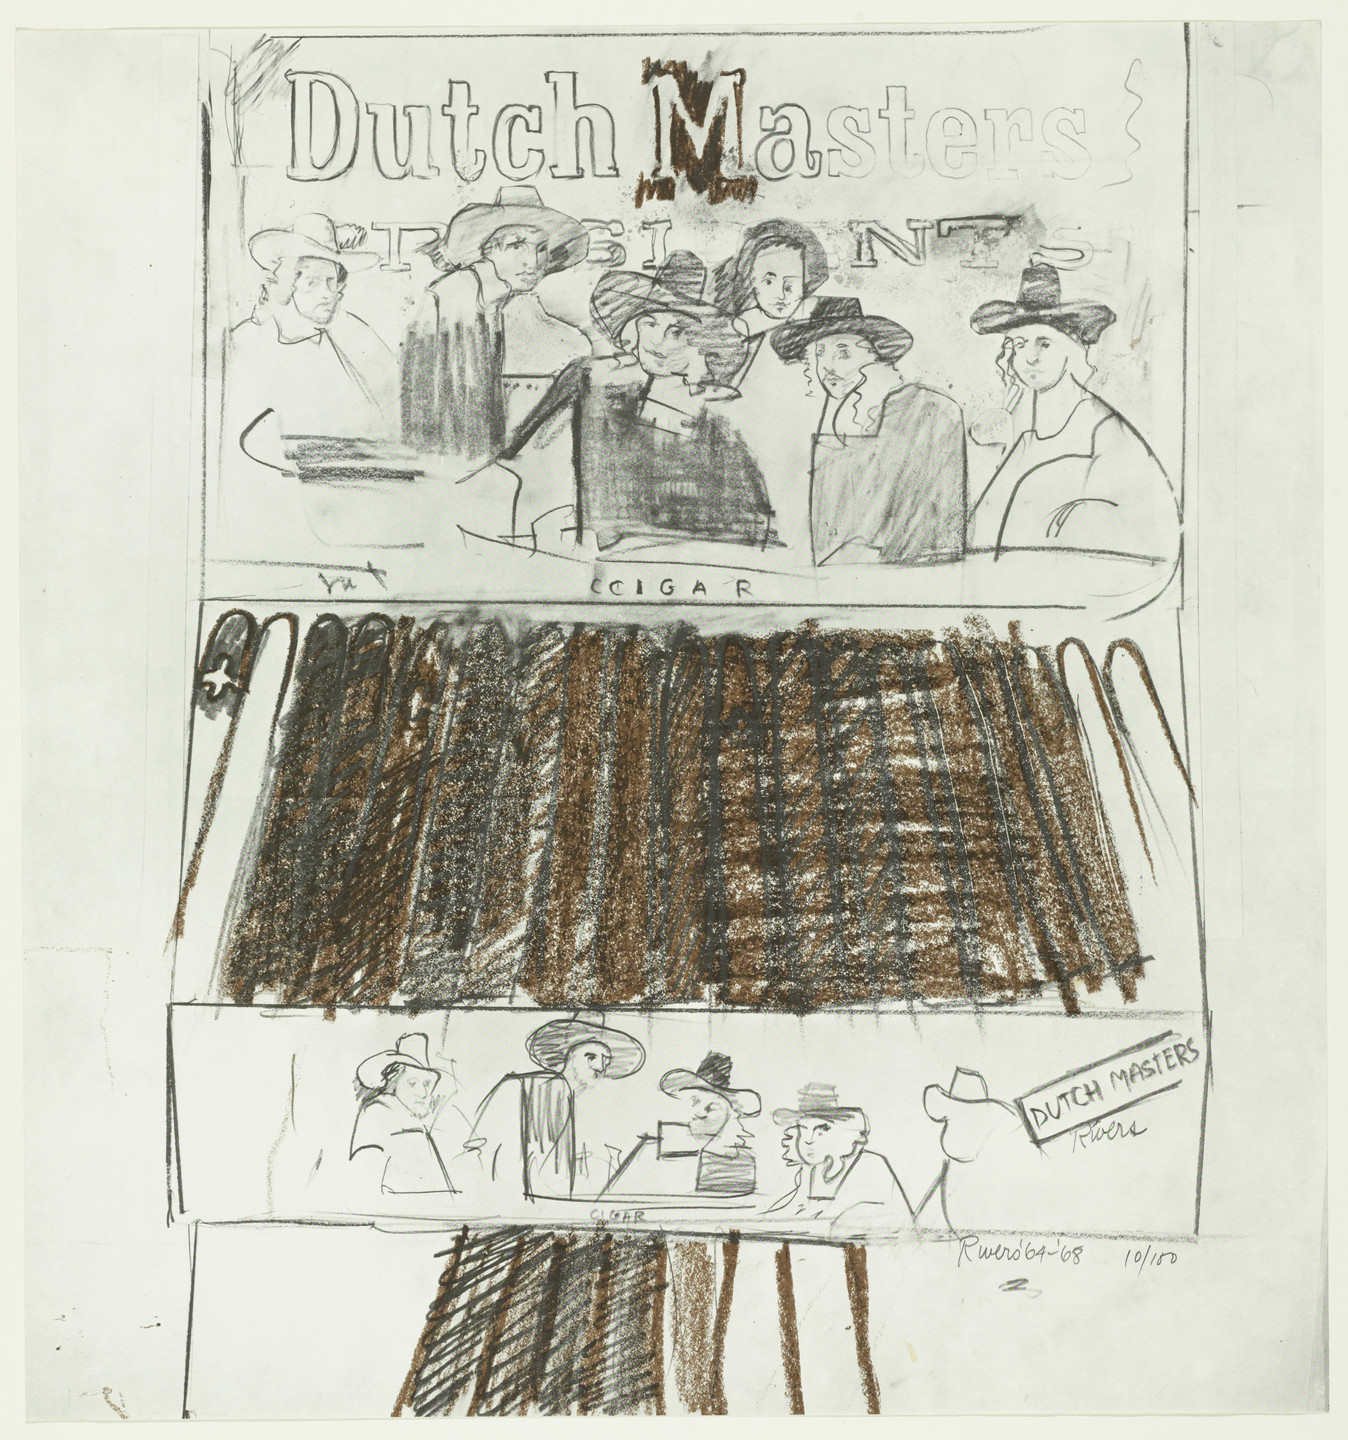 Dutch Masters
CCIGAR
DUTCH MASTERS
Rivers
CIGAR
Rivers '64-'68 10/100